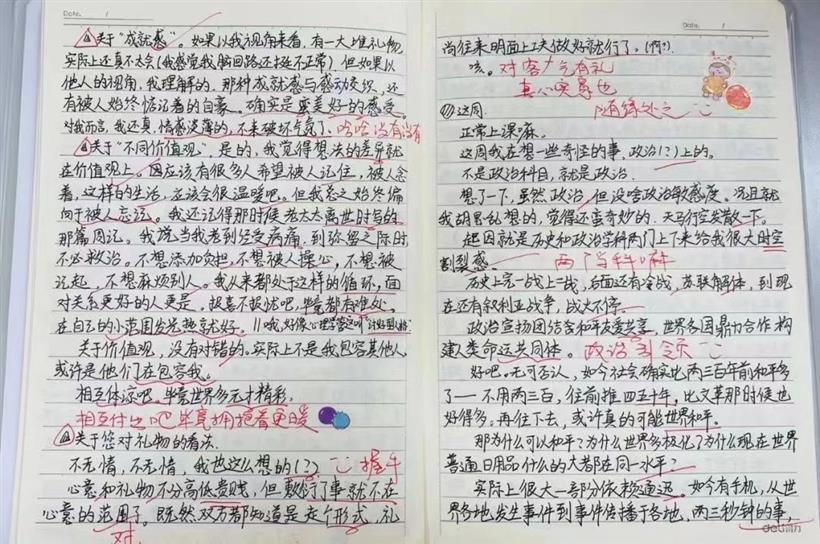 Date. /
①关于“成就感”。如果以我视角来看,有一大堆礼物
实际上还真不太会(我感觉我脑回路还挺不正常)但如果以
他人的视角,我理解的,那种成就感与感动交织,还
有被人始终惦记着的自豪。确实是蛮美好的感受。
对我而言,我还真,情感淡薄的,不来破坏气氛了、哈哈没有没有
②关于“不同价值观”,是的,我觉得想法的差异就
在价值观上。因应该有很多人希望被人记住,被人念
着,这样的生活,应该会很温暖吧。但我总之始终偏
向于被人忘记。我还记得那时候老太太离世时写的
那篇周记。我说当我老到经受病痛,到弥留之际时
不必救治。不想添加负担,不想被人操心,不想被
记起,不想麻烦别人。我从来都处于这样的循环,面
对关系更好的人更是,报喜不报忧吧,毕竟都有难处。
在自己的小范围发光热就好。
关于价值观,没有对错的。实际上不是我包容其他人,
或许是他们在包容我。
相互体谅吧。毕竟世界多元才精彩。
相互付出吧 毕竟拥抱着更暖
③关于您对礼物的看法
不无情,不无情,我也这么想的(?) 握手
心意和礼物不分高低贵贱,但敷衍了事就不在
心意的范围了。既然双方都知道是走个形式,礼
对
Date /
尚往来明面上功夫做好就行了。(啊?)
咳。对客气有礼
真心唤真心
这周. 随缘处之
正常上课麻。
这周我在想一些奇怪的事,政治(?)上的。
不是政治科目,就是政治.
想了一下,虽然政治,但没啥政治敏感度。况且就
我胡思乱想的,觉得还蛮奇妙的.天马行空发散一下。
起因就是历史和政治学科两门上下来给我很大时空
割裂感。 两门学科嘛
历史上完一战上二战,后面还有冷战,苏联解体,到现
在还有叙利亚战争,战火不停.
政治宣扬团结合和平发展共享,世界各国鼎力合作构
建人类命运共同体。政治引领
好吧。无可否认,如今社会确实比两三百年前和平多
了——不用两三百,往前推四五十年,比文革那时候也
好得多。再往下去,或许真的可能世界和平。
那为什么可以和平?为什么世界多极化了为什么现在世界
普通日用品什么的大都在同一水平?
实际上很大一部分依赖通迅。如今有手机,从世
界各地发生事件到事件传播于各地,两三秒钟的事,